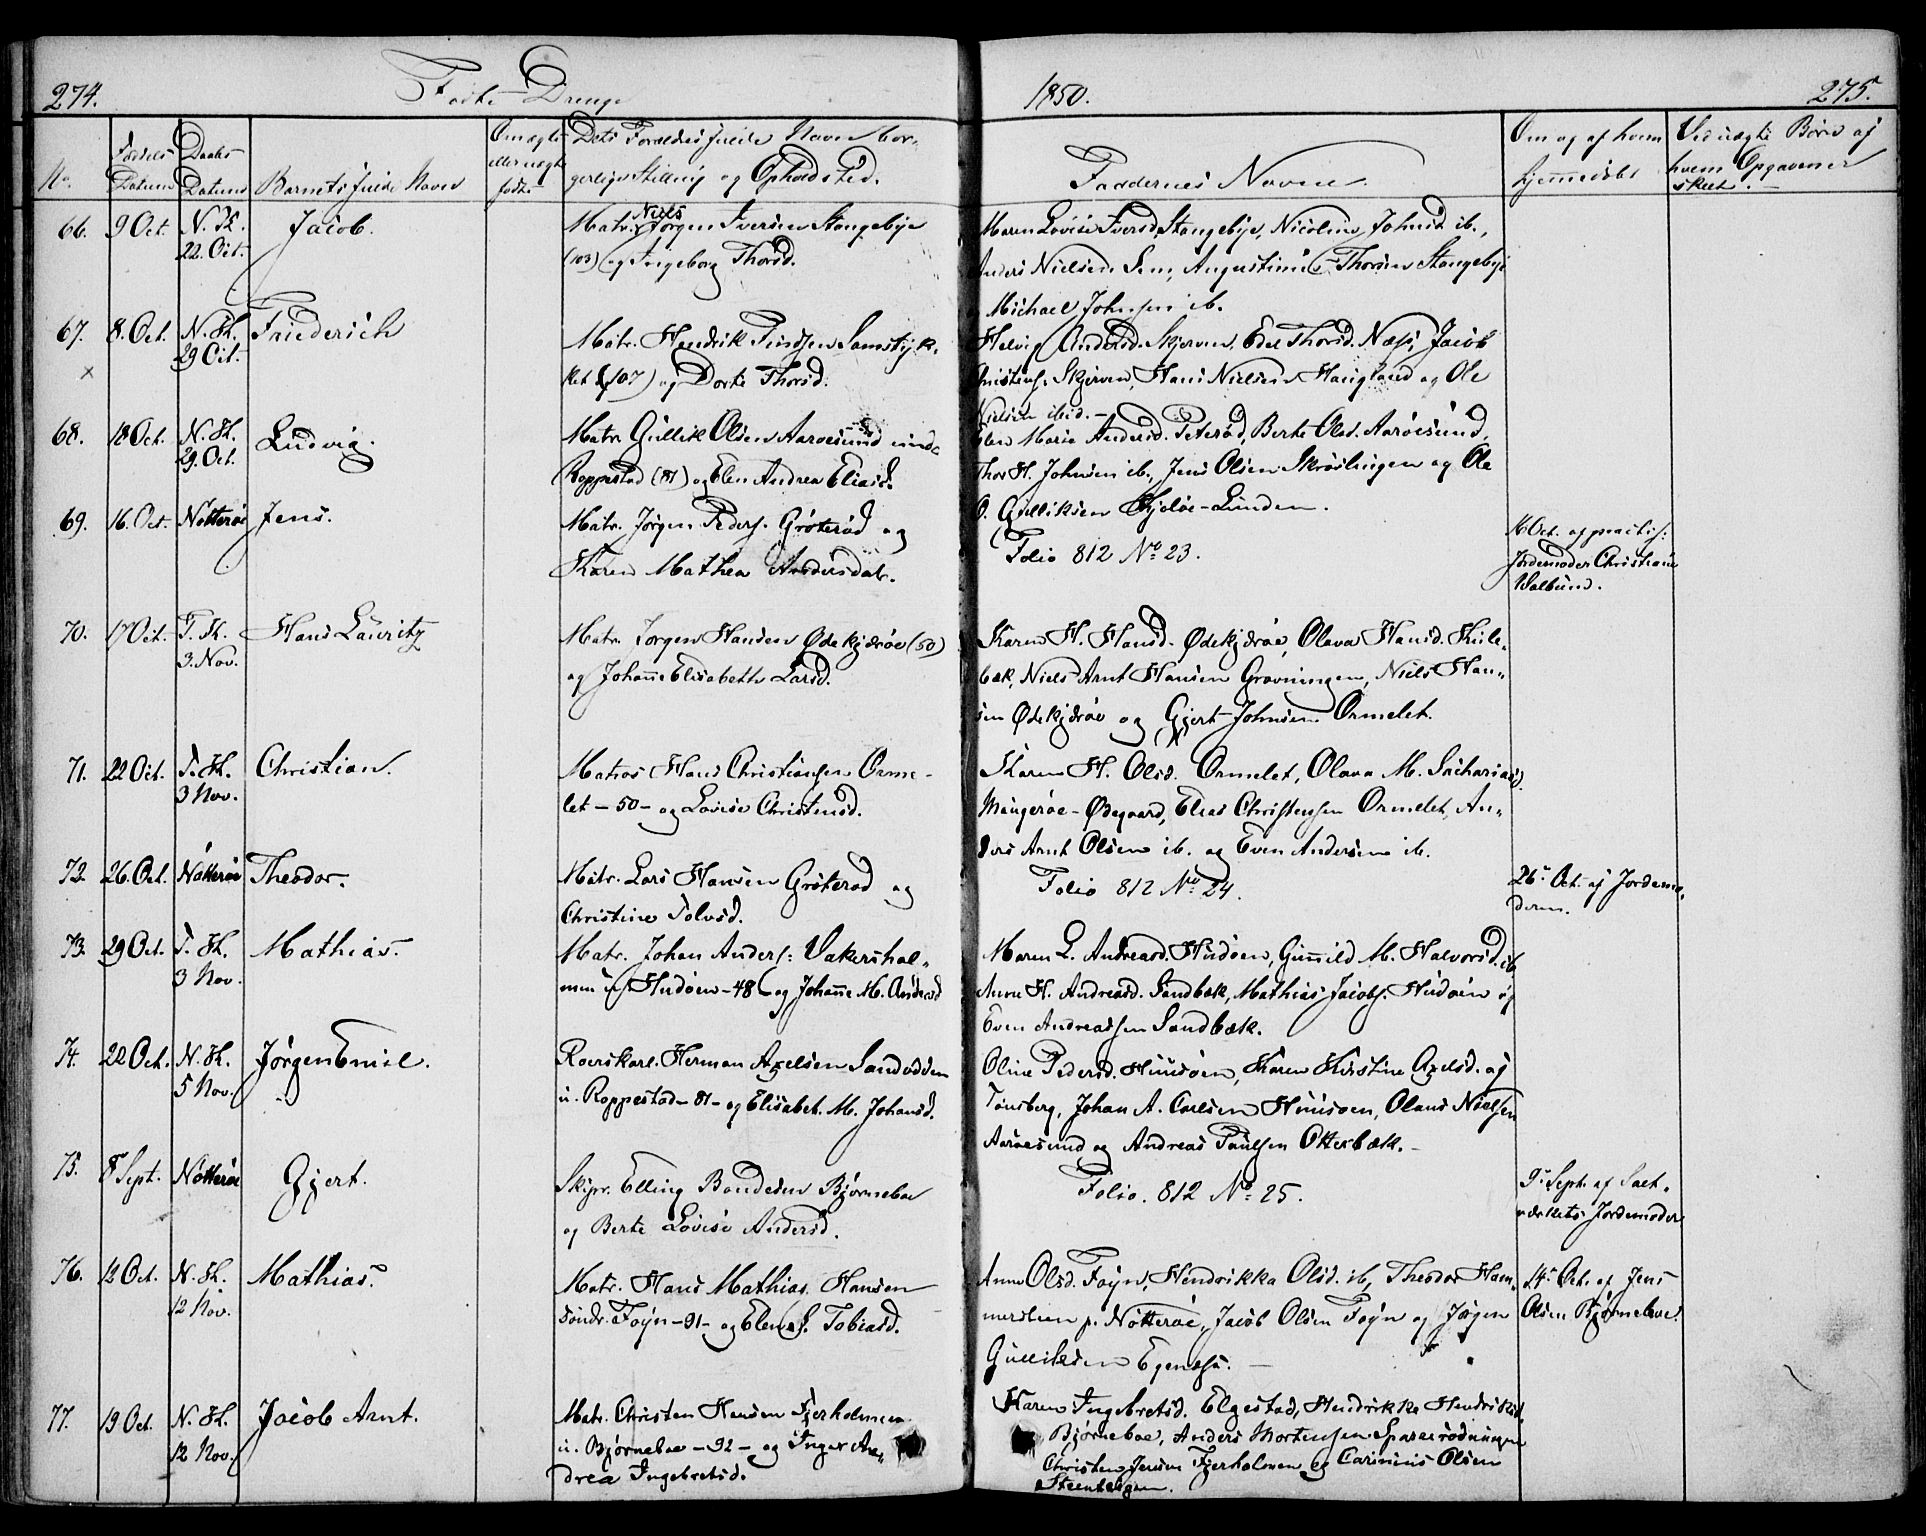 274. Fødte Drenge
1850. 275.
No. Fødsels Datum Daabs Datum Barnets fulde Navn Om ægte eller uægte født Dets Forældres fulde Navn bor-
gerlige Stilling og Opholdsted.
Faddernes Navne.
Om og af hvem hjemmedøbt
Ved uægte Børn af hvem Opgavener skeet.
66. 9 Oct. N. K. 22. Oct. Jacob.
Matr. Niels Jørgen Iversen Stangebye
(103) og Ingeborg Thorsd.
Maren Lovise Iversd. Stangebye, Nicoline Johnsd. ib.,
Anders Nielsen Sem, Augustinus Thorsen Stangebye
Michael Johnsen ib.
67. 8. Oct. N. K. 29 Oct. Friederich
×
Matr. Hendrik
ket (107) og Dorte Thorsd.
Helvig Andersd. Skjerven, Edel Thorsd. Næs, Jacob
Christens. Skjerven, Hans Nielsen Haugland og Ole
Nielsen ibid. -
68. 18 Oct. N. K. 29. Oct. Ludvig.
Matr. Gullik Olsen Aarøesund und.
Roppestad (81) og Elen Andrea Eliasd.
Elen Marie Andersd. Peterød, Berte Olsd. Aarøesund,
Thor H. Johnsen ib., Jens Olsen Skrøslingen og Ole
O. Gulliksen Hjeløe-Lunden.
69. 16. Oct. Nøtterøe Jens.
Matr. Jørgen Peders. Grøterød og
Karen Mathea Andersdat.
Folio 812 No 23.
16 Oct. af practis:
Jordemoder Christiane
Walbund.
70. 17 Oct. T. K. 3. Nov. Hans Lauritz
Matr. Jørgen Hansen Ødekjærøe (50)
og Johanne Elisabeth Larsd.
Karen H. Hansd. Ødekjærøe, Olava Hansd. Kile-
bæk, Niels Arnt Hansen Grøvningen, Niels Han-
sen Ødekjærøe og Gjert Johnsen Ormelet.
71. 22 Oct. T. K. 3 Nov. Christian.
Matros Hans Christiansen Orme-
let - 50 - og Lovise Christensd.
Karen H. Olsd. Ormelet, Olava M. Sachariasd.
Mangerøe-Ødegaard, Elias Christensen Ormelet, An-
ders Arnt Olsen ib. og Even Andersen ib.
72. 26. Oct. Nøtterøe Theodor.
Matr. Lars Hansen Grøterød og
Christine Tolvsd.
Folio 812 No 24.
26 Oct. af Jordemo-
deren.
73. 29 Oct. T. K. 3 Nov. Mathias.
Matr. Johan Anders: Vakershol-
men u. Hudøen - 48 - og Johanne M. Andersd
Maren L. Andreasd. Hudøen, Gunnild M. Halvorsd. ib
Anne H. Andreasd. Sandbæk, Mathias Jacobs. Hudøen og
Even Andreassen Sandbæk.
74. 22 Oct. N. K. 5 Nov. Jørgen Emil.
Roerskarl. Herman Axelsen Sandodden
u. Roppestad - 81 - og Elisabet. M. Johansd.
Oline Pedersd. Huusøen, Karen Kristine Axelsd. af
Tønsberg, Johan A. Carlsen Huusøen, Olaus Nielsen
Aarøesund og Andreas Paulsen Otterbæk. -
75. 8 Sept. Nøtterøe Gjert.
Skipr. Elling Bondesen Bjørneboe
og Berte Lovise Andersd.
Folio. 812 No 25.
9 Sept. af Saet-
værkets Jordemoder
76. 12 Oct. N. K. 12 Nov. Mathias.
Matr. Hans Mathias Hansen
søndr. Føyn - 91 - og Elen S. Tobiasd.
Anne Olsd. Føyn, Hendrikka Olsd. ib, Theodor Ham-
mersteen p. Nøtterøe, Jacob Olsen Føyn og Jørgen
Gulliksen Egenæss. -
14 Oct. af Jens
Olsen Bjørneboe.
77. 19 Oct. N. K. 12 Nov. Jacob Arnt.
Matr. Christen Hansen Fjerholmen
u. Bjørneboe - 92 - og Inger An-
drea Ingebretsd.
Karen Ingebretsd. Elgestad, Hendrikke Hendriksd.
Bjørneboe, Anders Mortensen Sparrerødningen
Christen Jensen Fjerholmen og Carinius Olsen